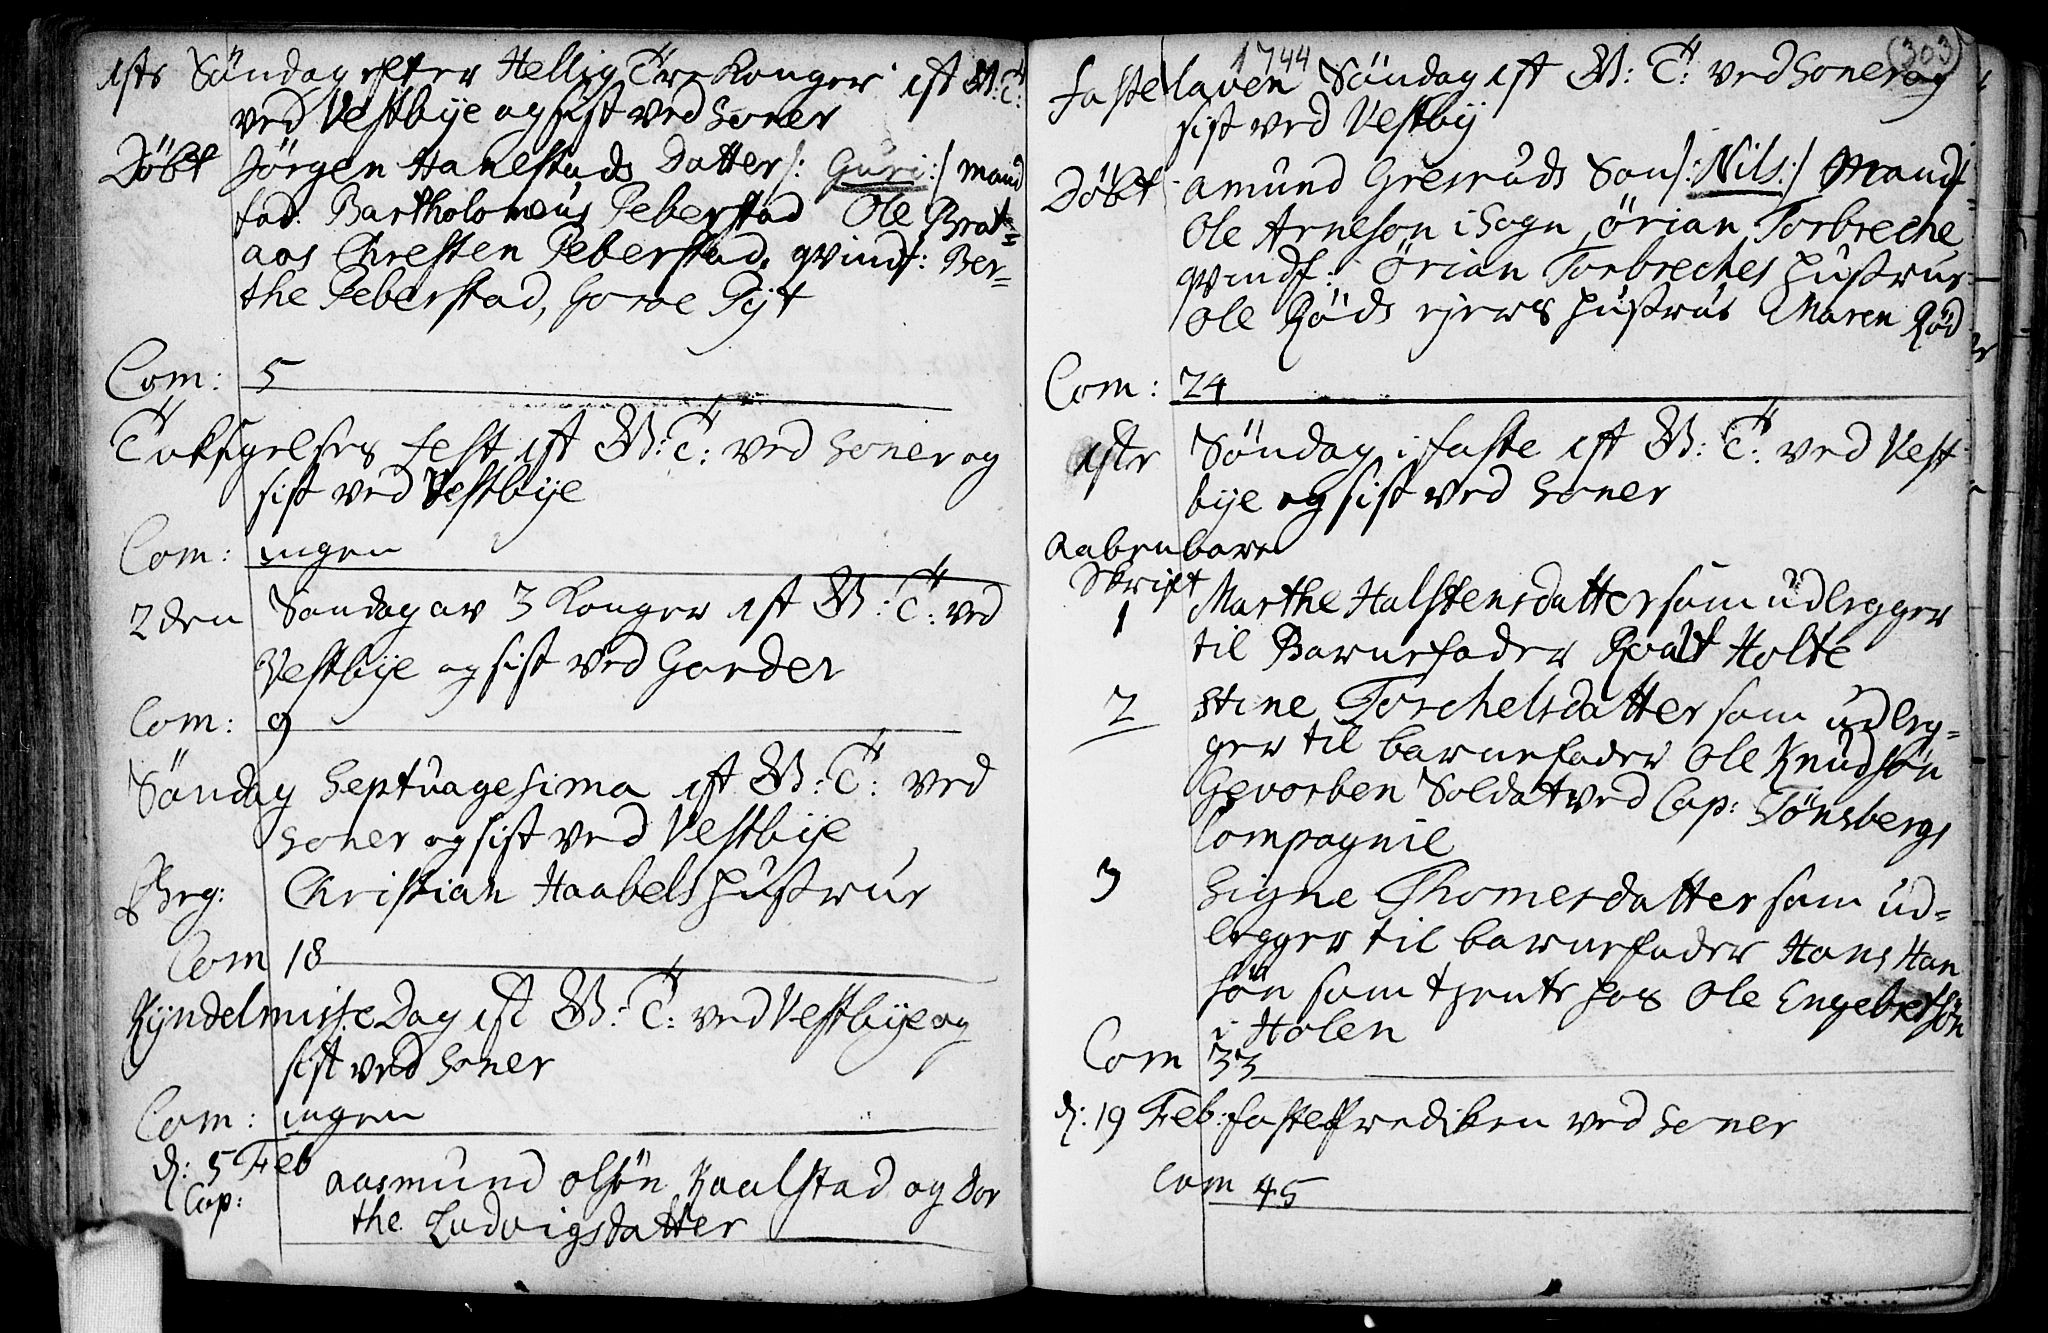 1ste Söndag efter Hellig Tre Konger ist G: T:
ved Vestbye og sist ved Soner
Döbt Jörgen Hanestads Datter /: Guri :/ mand
fad: Bartholomeus Peberstad Ole Brat=
aas Chresten Peberstad, qvindf: Ber=
the Peberstad, Goroe Pijt
Com: 5
Taksigelses Fest ist G: T: ved Soner og
sist ved Vestbye
Com: ingen
2den Söndag av 3 Konger ist G: T: ved
Vestbye og sist ved Garder
Com: 9
Söndag Septuagesima ist G: T: ved
Soner og sist ved Vestbye
Beg: Christian Haabels Hustrue
Com 18
Kyndelmisse Dag ist G: T: ved Vestbye og
sist ved Soner
Com: ingen
d: 5 Feb
Cop: Aasmund Olsön Kaalstad og Dor
the Ludvigsdatter
1744 (303)
Fastelaven Söndag ist G: T: ved Soner og
sist ved Vestby
Döbt Amund Gresruds Son /: Nils :/ Mandf
Ole Arneson i Sogn, Örian Torbreche
qvindf: Örian Torbreches Hustrue
Ole Röds ejers Hustrue Maren Röd
Com: 24
1ste Söndag i faste ist G: T: ved Vest
bye og sist ved Soner
Aabenbare
Skrift
1 Marthe Halstensdatter som udlegger
til Barnefader Roalt Holte
2 Stine Torchelsdatter som udleg=
ger til barnefader Ole Knudsön
Gevorben Soldat ved Cap: Tönsbergs
Compagnie
3 Signe Thomesdatter som ud=
legger til barnefader Hans Han
sön som tjente hos Ole Engebretsön
i Holen
Com 33
d: 19 Feb: faste Prediken ved Soner
Com 45